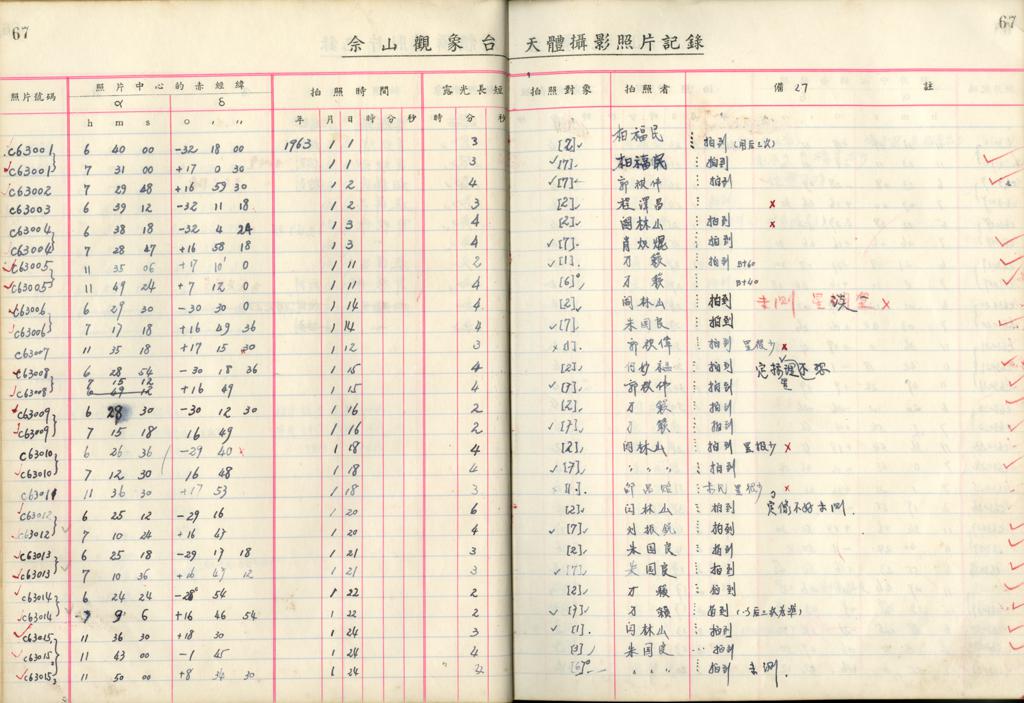 67
67
佘山觀象台 天體攝影照片記錄
照片號碼 照片中心的赤經緯 拍照時間 露光長短 拍照對象 拍照者 備 27 註
α δ
h m s ° ′ ″ 年 月 日 時 分 秒 時 分 秒
c63001 6 40 00 -32 18 00 1963 1 1 3 [2] 柏福民 拍到 (用后二次)
c63001 7 31 00 +17 0 30 1 1 3 [7] 柏福民 拍到
c63002 7 29 48 +16 59 30 1 2 4 [7] 郭权伟 拍到
c63003 6 39 12 -32 11 18 1 2 3 [2] 程澤昌 x
c63004 6 38 18 -32 4 24 1 3 4 [2] 闾林山 拍到 x
c63004 7 28 47 +16 58 18 1 3 4 [7] 拍到
c63005 11 35 06 +17 10 0 1 11 2 [1] 万籁 拍到 B+60
c63005 11 49 24 +7 12 0 1 11 4 [6] 万籁 B+40
c63006 6 29 30 -30 30 0 1 14 4 [2] 闾林山 拍到 未测 星 x
c63006 7 17 18 +16 49 36 1 14 4 [7] 朱国良 拍到
c63007 11 35 18 +17 15 30 1 12 3 [1] 郭权偉 拍到 星极少 x
c63008 6 28 54 -30 18 36 1 15 4 [2] 何妙福 拍到
7 15 12
c63008 6 49 12 +16 49 1 15 4 [7] 郭权伟 拍到
c63009 6 28 30 -30 12 30 1 16 2 [2] 万籁 拍到
c63009 7 15 18 16 49 1 16 2 [7] 万籁 拍到
c63010 6 26 36 -29 40 1 18 4 [2] 闾林山 拍到 星极少 x
c63010 7 12 30 16 48 1 18 4 [7] 〃 〃 〃 拍到
c63011 11 36 30 +17 53 1 18 3 [1] 星极少 x
c63012 6 25 12 -29 16 1 20 6 [2] 闾林山 拍到 定像不好未测.
c63012 7 10 24 +16 47 1 20 4 [7] 刘振銳 拍到
c63013 6 25 18 -29 17 18 1 21 3 [2] 朱国良 拍到
c63013 7 10 36 +16 47 12 1 21 3 [7] 朱国良 拍到
c63014 6 24 24 -28 54 1 22 2 [2] 万籁 拍到
c63014 7 9 6 +16 46 54 1 22 2 [7] 万籁 拍到
c63015 11 36 30 +18 30 1 24 3 [1] 闾林山 拍到
c63015 11 43 00 -1 45 1 24 4 [3] 朱国良 拍到
c63015 11 50 00 +8 34 30 1 24 4 [6] 拍到 未测.